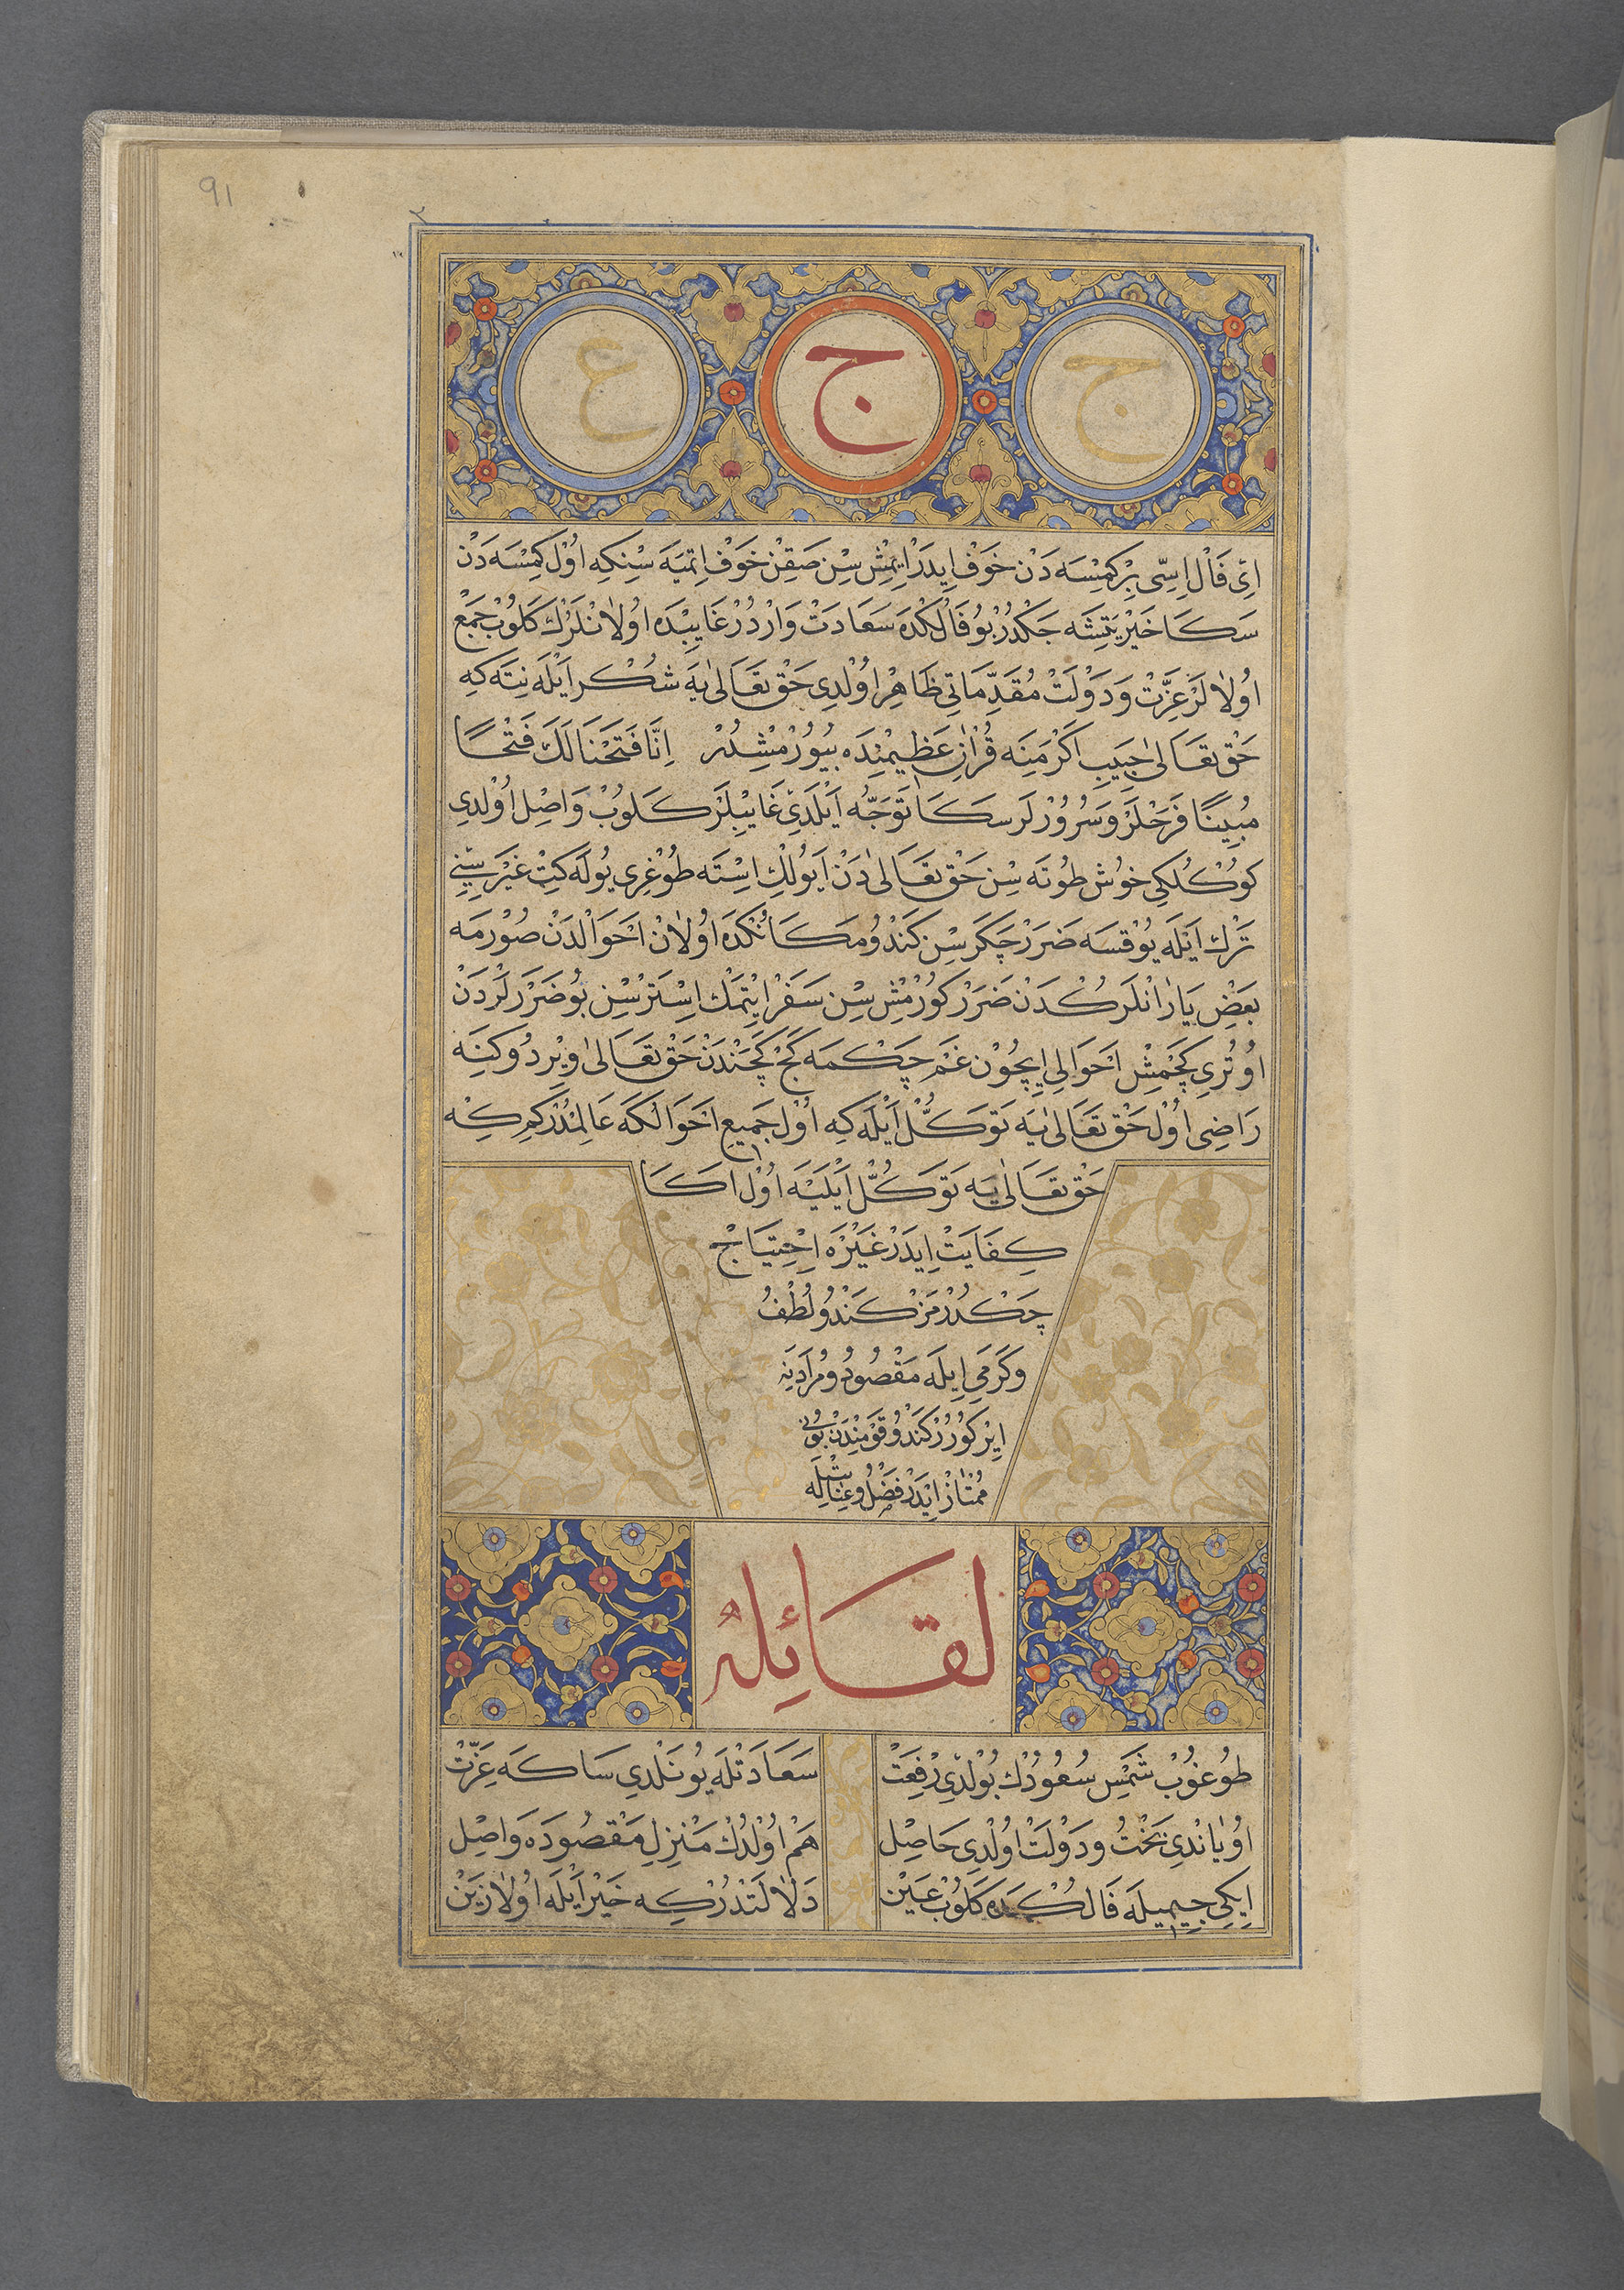 91
ج ج ع
اِیْ فَالْ اِسّی بِرْ كِمْسَه دَنْ خَوْف اِیدَرْ اِیمِشْ سِنْ صَقِنْ خَوْف اِتمَیَه سِنكِه اُوْل كِمْسَه دَنْ
سَكَا خَیْر یَتِشَه جَكْدُرْ بُو فَالُكْدَه سَعَادَتْ وَارْدُرْ غَایِبْدَه اُولَانْلَرُكْ كَلُوبْ جَمْع
اُولَالَرْ عِزَّتْ وَ دَوْلَتْ مُقَدِّمَاتِی ظَاهِرْ اُوْلْدِی حَقْ تَعَالٰی یَه شُكْر اَیْلَه نِتَه كَه
حَقْ تَعَالٰی حَبِیبِ اَكْرَمِنَه قُرْاٰنِ عَظِیمِنْدَه بِیُورْمِشْدُرْ اِنَّا فَتَحْنَا لَكَ فَتْحًا
مُبِینًا فَرَحْلَرْ وَ سُرُورْلَر سَكَا تَوَجُّه اَیْلَدِی غَایِبْلَرْ كَلُوبْ وَاصِل اُوْلْدِی
كُوكُلكِی خُوش طُوتَه سِنْ حَقْ تَعَالٰی دَنْ اَیُولِكْ اِسْتَه طُوغْرِی یُولَه كِتْ غَیْرِیسِنِی
تَرْك اَیْلَه یُوْقسَه ضَرَرْ چَكَرْ سِنْ كَنْدُو مَكَانُكْدَه اُولَانْ اَحْوَالْدَنْ صُوْرمَه
بَعْضِ یَارَانْلَرُكْدَنْ ضَرَرْ كُورْمِشْ سِنْ سَفَرْ اِیْتمَكْ اِسْتَرْ سِنْ بُو ضَرَرْلَرْدَنْ
اُوتُرِی كَچْمِشْ اَحْوَالِی اِیچُونْ غَمْ چَكْمَه كَجْ كَچَنْدَنْ حَقْ تَعَالٰی وِیرْدُوكِنَه
رَاضِی اُوْل حَقْ تَعَالٰی یَه تَوَكُّلْ اَیْلَه كَه اُوْل جَمِیعِ اَحْوَالُكَه عَالِمْدُرْ كِمْ كِه
حَقْ تَعَالٰی یَه تَوَكُّلْ اَیْلَیَه اُوْل اَكَا
كِفَایَتْ اِیدَرْ غَیْرَه اِحْتِیَاجْ
چَكْدُرْمَزْ كَنْدُو لُطْفُ
وَ كَرَمِی اِیلَه مَقْصُودْ و مُرَادِینَه
اِیرْكُورُرْ كَنْدُو قَوْمِنْدَنْ بُونِی
مُمْتَازْ اِیْدَرْ فَضْل وعِنَایَتْلَه
لقَائِلِهُ
طُوغُوبْ شَمْسِ سُعُودُكْ بُولْدِی رِفْعَتْ سَعَادَتْلَه یُونَلْدِی سَاكَه عِزَّتْ
اُویَانْدِی بَخْتُ و دَوْلَتْ اُولْدِی حَاصِل هَمْ اُوْلْدُكْ مَنْزِلِ مَقْصُودَه وَاصِل
اِیكِی جِیمِیلَه فَالُكْدَه كَلُوبْ عَیْنْ دَلَالَتْدُرْ كِه خَیْر اَیْلَه اُولَا زَیْنْ